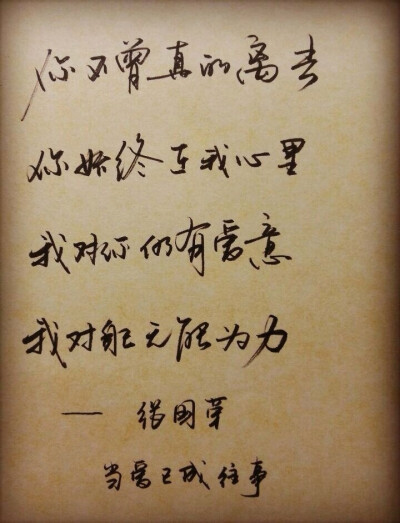 你不曾真的离去
你始终在我心里
我对你仍有爱意
我对自己无能为力
—— 张国荣
当爱已成往事